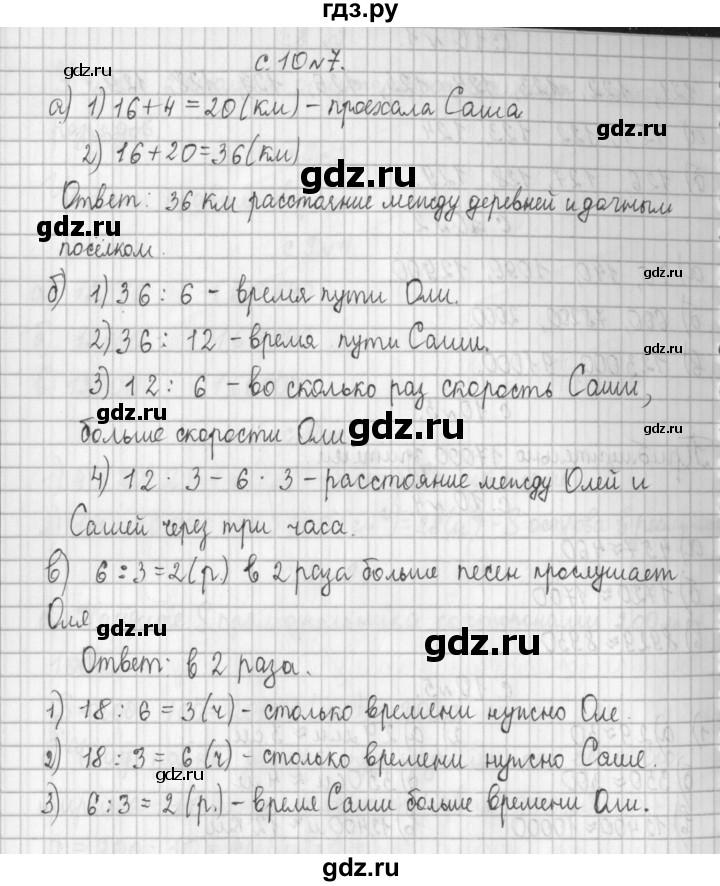 гдз.ру
gdz.ru
с. 10 № 7.
gdz.ru
а) 1) 16+4=20 (км) – проехала Саша
gdz.ru
2) 16+20=36 (км)
gdz.ru
Ответ: 36 км расстояние между деревней и дачным
gdz.ru
посёлком.
gdz.ru
б) 1) 36 : 6 – время пути Оли.
2) 36 : 12 – время пути Саши.
gdz.ru
3) 12 : 6 – во сколько раз скорость Саши,
gdz.ru
больше скорости Оли
gdz.ru
4) 12 · 3 – 6 · 3 – расстояние между Олей и
gdz.ru
Сашей через три часа.
gdz.ru
в) 6 : 3 = 2 (р.) в 2 раза больше песен прослушает
Оля
gdz.ru
gdz.ru
Ответ: в 2 раза.
1) 18 : 6 = 3 (ч) – столько времени нужно Оле.
2) 18 : 3 = 6 (ч) – столько времени нужно Саше.
gdz.ru
gdz.ru
3) 6 : 3 = 2 (р.) – время Саши больше времени Оли.
gdz.ru
gdz.ru
gdz.ru